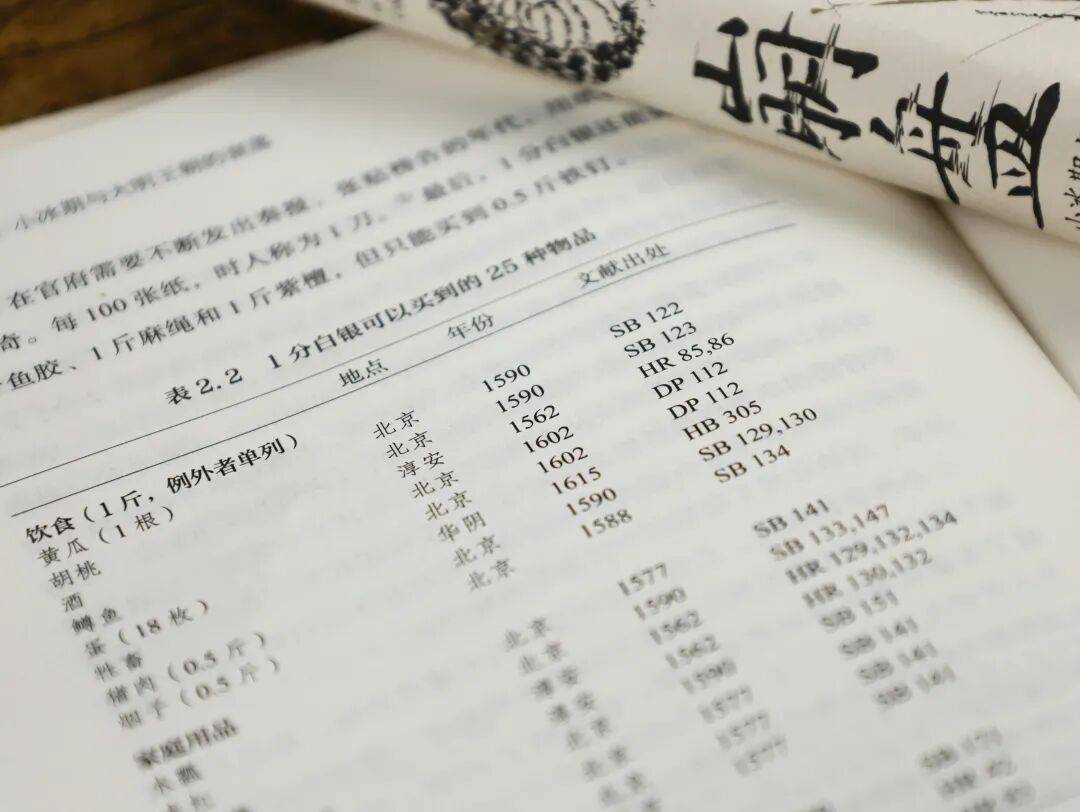 崩盘
小冰期
小冰期与大明王朝的衰落
在官府需要不断发出奏报、张贴榜告的年代,
奇。每 100 张纸,时人称为 1 刀。最后,1 分白银还能
鱼胶、1 斤麻绳和 1 斤紫檀,但只能买到 0.5 斤铁钉。
表 2.2 1 分白银可以买到的 25 种物品
地点 年份 文献出处
饮食(1 斤,例外者单列)
黄瓜(1 根) 北京 1590 SB 122
胡桃 北京 1590 SB 123
酒 淳安 1562 HR 85,86
鳟鱼 北京 1602 DP 112
蛋(18 枚) 北京 1602 DP 112
牲畜 华阴 1615 HB 305
猪肉(0.5 斤) 北京 1590 SB 129,130
(0.5 斤) 北京 1588 SB 134
家庭用品
水瓢 北京 1577 SB 141
北京 1590 SB 133,147
淳安 1562 HR 129,132,134
淳安 1562 HR 130,132
北京 1590 SB 151
北京 1577 SB 141
北京 1577 SB 141